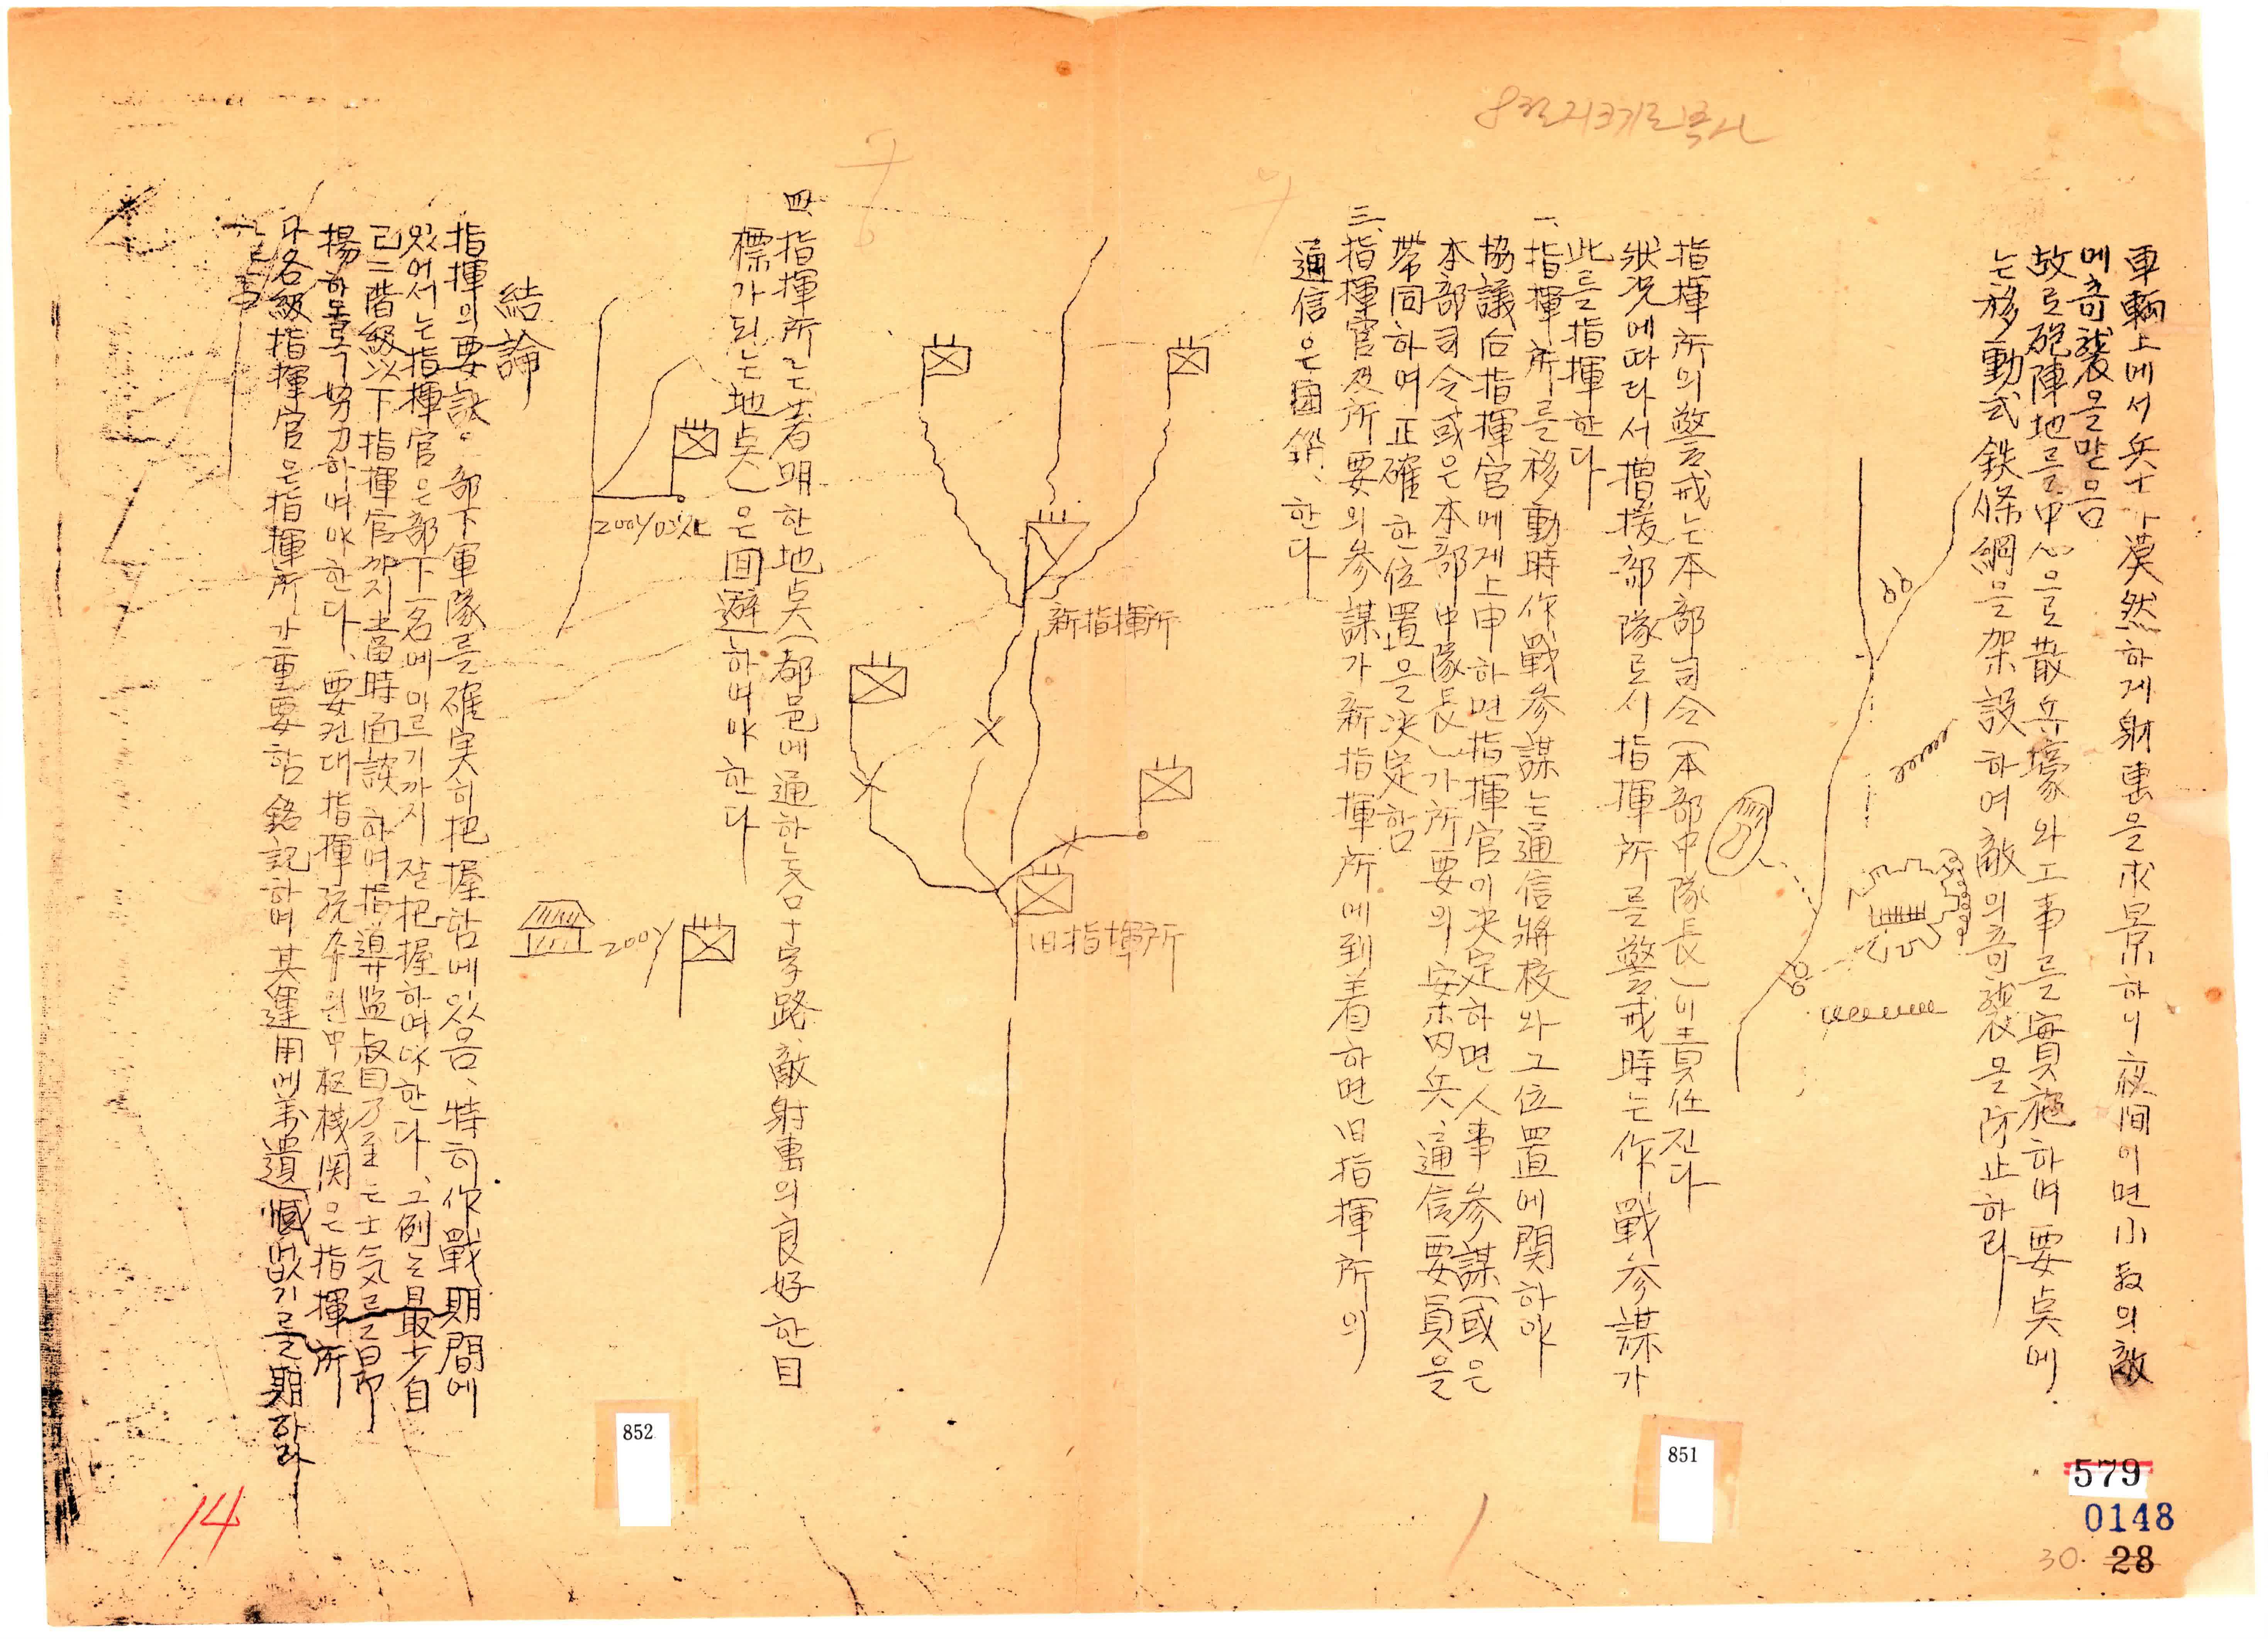 車輛上에서 兵士가 漠然하게 射擊을 求景하니 夜間이면 小数의 敵
에 奇襲을 맏음
故로 砲陣地를 中心으로 散兵壕와 工事를 實施하며 要点에
는 移動式 鉄條綱을 架設하여 敵의 奇襲을 防止하라
指揮所의 警戒는 本部司令(本部中隊長)이 責任진다
狀況에 따라서 增援部隊로서 指揮所를 警戒時는 作戰參謀가
此를 指揮한다
指揮所를 移動時 作戰參謀는 通信將校와 그 位置에 関하야
協議后 指揮官에게 上申하면 指揮官이 決定하면 人事參謀(或은
本部司令 或은 本部中隊長)가 所要의 安末内兵、通信要員을
帶同하여 正確한 位置을 決定함
三、指揮官及所要의 參謀가 新指揮所에 到着하면 旧指揮所의
通信은 한다
新指揮所
旧指揮所
四、指揮所는 著明한 地点(都邑에 通하는 十字路、敵射擊의 良好한 目
標가 되는 地点)은 回避하며야 한다
200y 이상
200y
結論
指揮의 要訣은 部下軍隊를 確実히 把握함에 있음、特히 作戰期間에
있어서는 指揮官은 部下一名에 이르기까지 잘 把握하며야 한다、그 例는 最少 自
己二階級以下 指揮官까지 當時 面談하여 指導監督 乃至는 士気를 昂
揚하도록 努力하며야 한다、要컨대 指揮 中枢機関은 指揮所
다 各級指揮官은 指揮所가 重要함 銘記하며 其運用에 萬遺憾없기를 期하라
852
851
579
0148
30
28
14